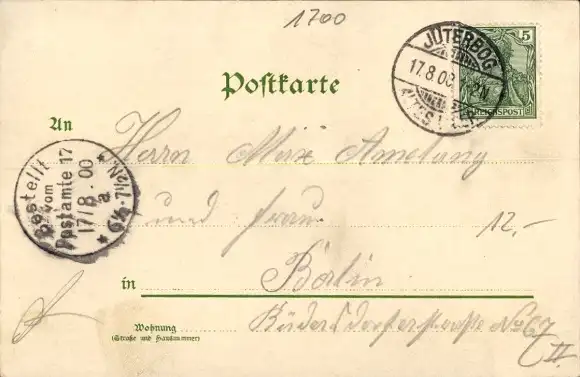 1700
JÜTERBOG
17.8.00
ALTES LAGER
5
REICHSPOST
Postkarte
An
Herrn Max Amelung
und Frau
12,-
Bestellt
vom
Postamte 17
17/8.00
a
in
Berlin
Wohnung
(Straße und Hausnummer)
Rüdersdorferstraße No 67
II